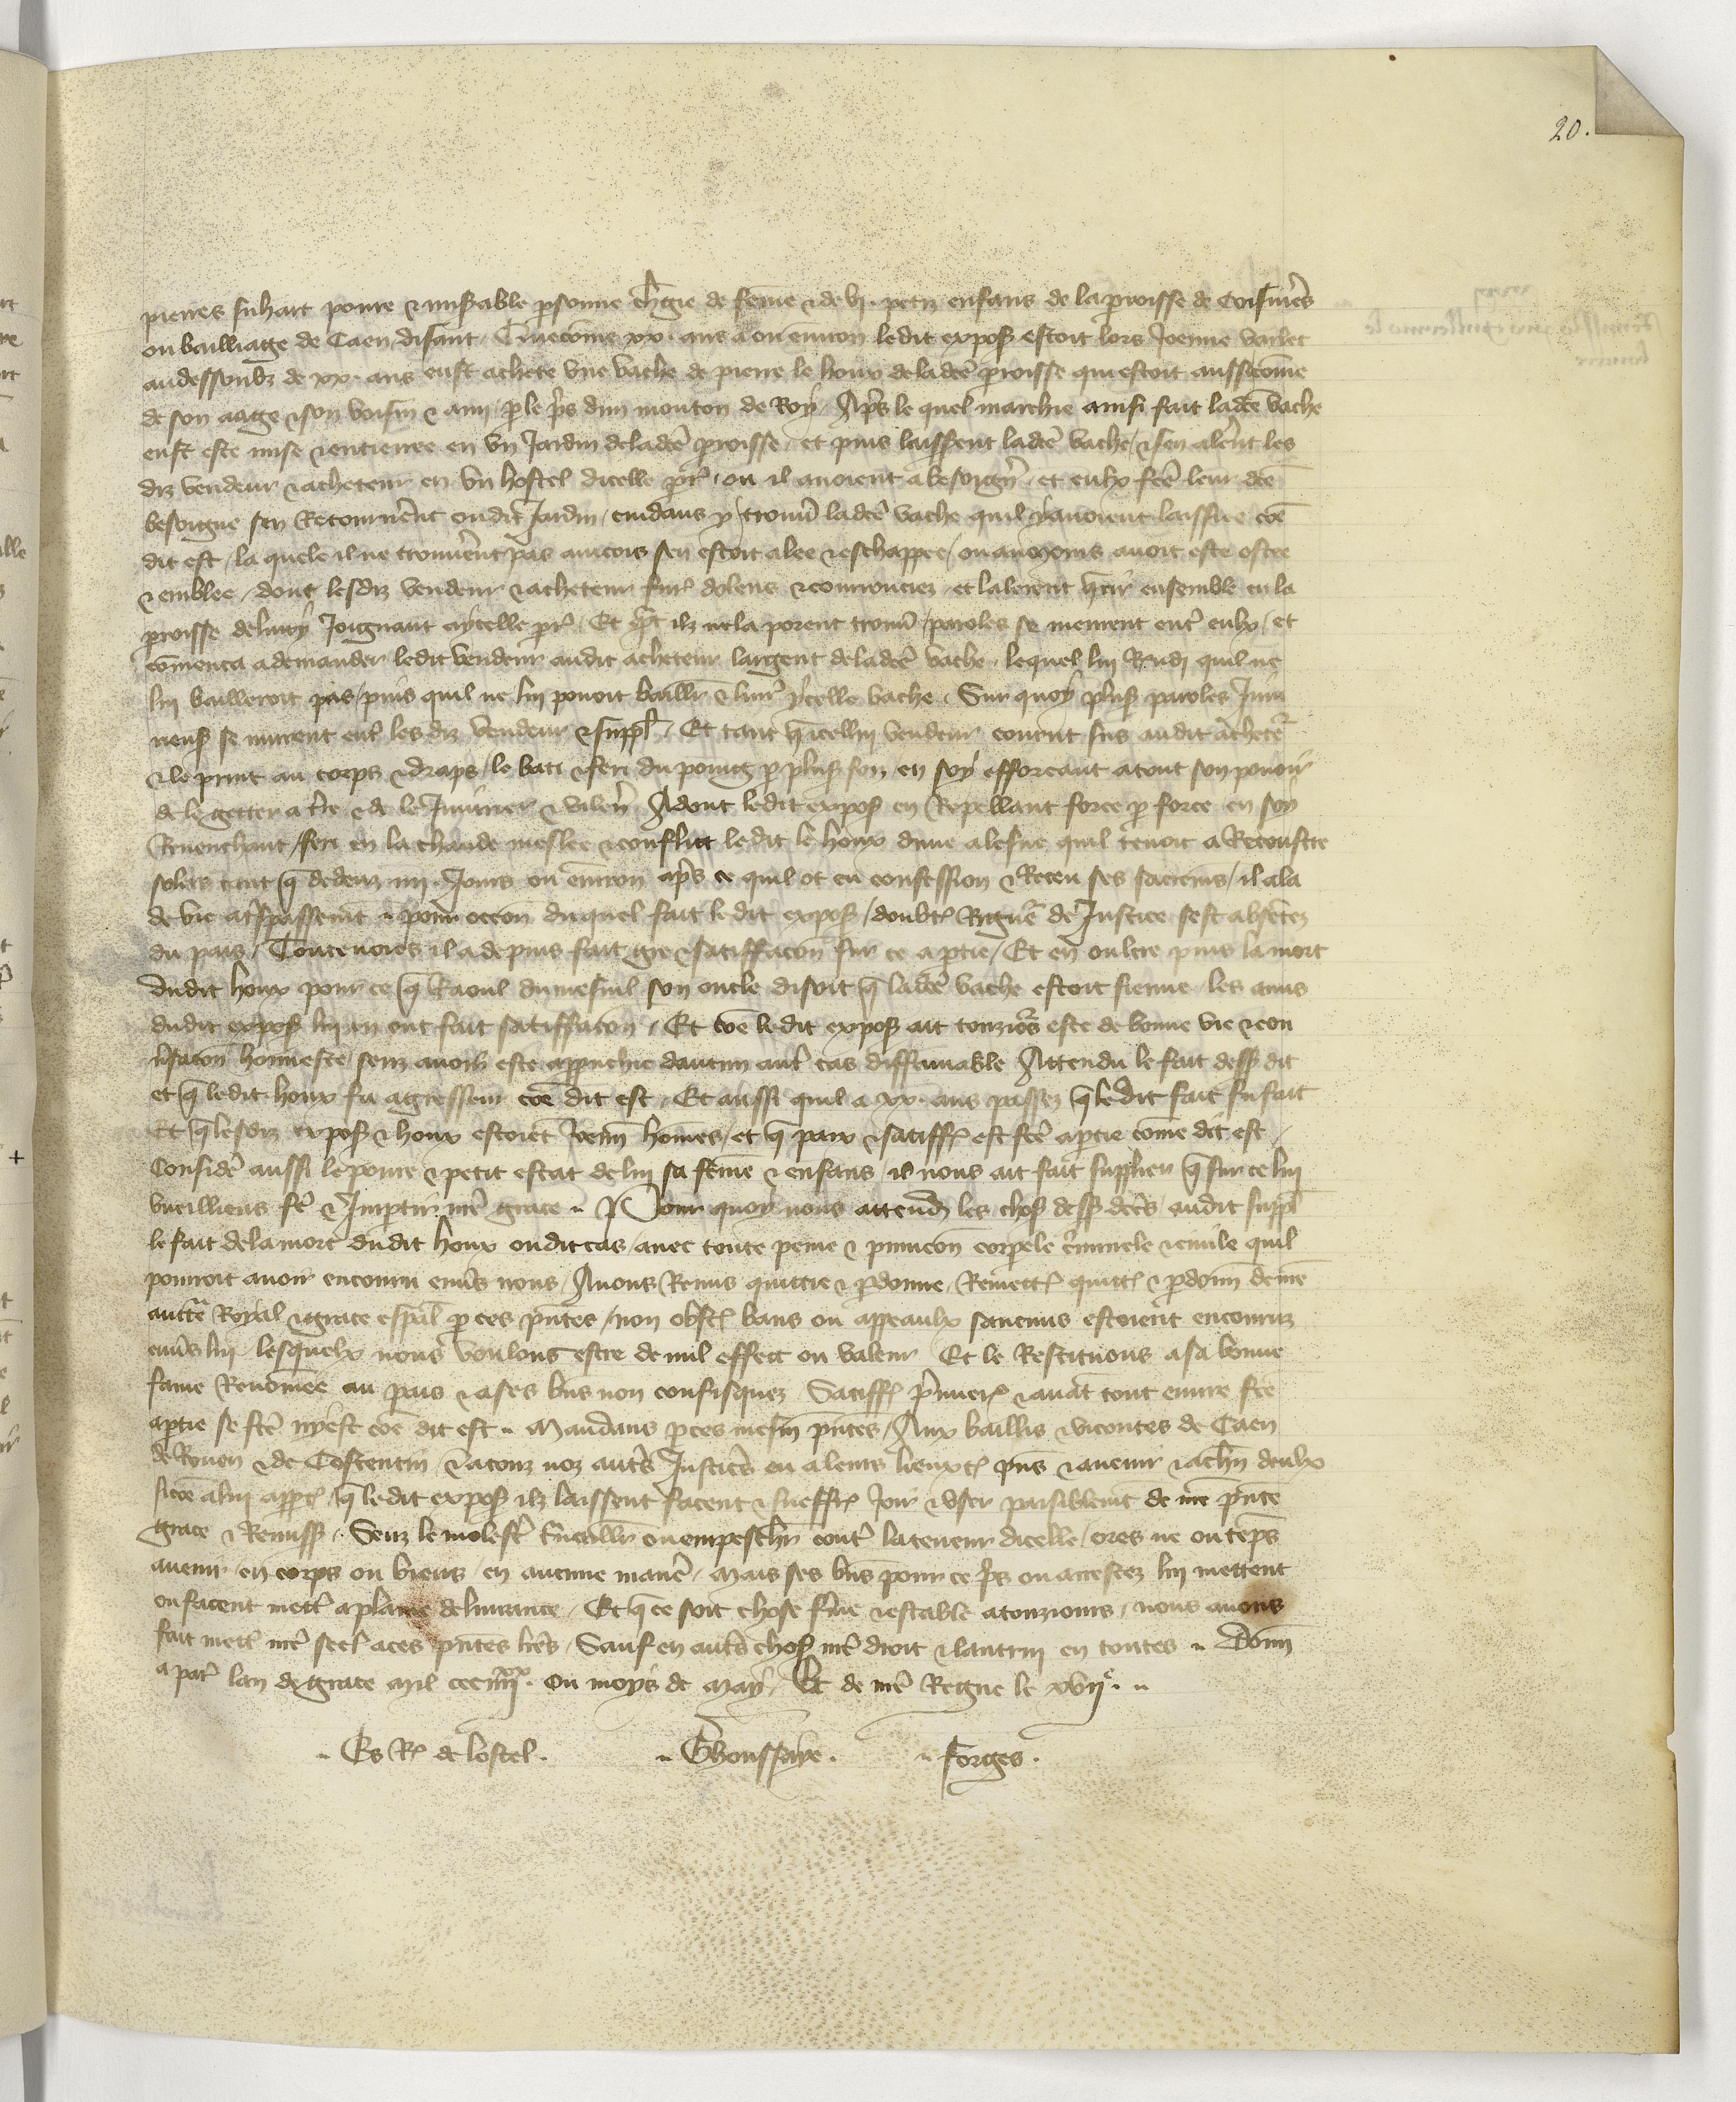 20.
pierres suhart poure & miserable psonne chgie de feme & de vj. petiz enfans de la proisse de
ou bailliage de Caen disant Que come xx. ans a ou environ ledit expos estoit lors Joenne varlet
au dessoubz de xx. ans eust achete une vache de pierre le houx de ladce proisse qui estoit aussi come
de son aage & son voisin & ami p le pris dun mouton de Roy. Apres le quel marchie ainsi fait ladce vache
eust este mise & enterree en un Jardin de ladce proisse et puis laissent ladce vache & sen alerent les
diz vendeur & acheteur en un hostel dicelle pr ou il avoient a besongner et eulx fce leur dce
besongne sen Retournerent oudit Jardin cuidans y trouver ladce vache quil y avoient laissiee coe
dit est la quele il ne trouverent pas aincois sen estoit alee & eschappee ou au moins avoit este ostee
& emblee dont lesdiz vendeur & acheteur fur dolens & courrouciez et lalerent querir ensemble en la
proisse de Joignant a ycelle pr Et qnt ilz ne la porent trouver paroles se meurent entr eulx et
comenca a demander ledit vendeur audit acheteur largent de ladce vache lequel lui Rendi quil ne
lui bailleroit pas puis quil ne lui povoit bailler & livrer ycelle vache. Sur quoy plus paroles Iniu
rieuses se murent entre les diz vendeur & suppl Et tant q icellui vendeur courut sus audit acheteur
& le print au corps & draps le bati & feri du poing p plus fois en soy efforcant a tout son pouoir
de le getter a tre & de le Iniurier & vilener Adont ledit expos en Repellant force p force en soy
Revenchant feri en la chaude meslee & conflict ledit le houx dune alesne quil tenoit a Recoustre
solers tant q dedenz iiij. Jours ou environ apres ce quil ot eu confession & Receu ses sacremens il ala
de vie a trespassement pour occon du quel fait le dit expos doubt Rigueur de Justice sest absentez
du pais. Toutevoies il a depuis fait gre & satiffacon sur ce a ptie Et en oultre puis la mort
dudit houx pour ce q Raoul dumesnil son oncle disoit q ladce vache estoit sienne les amis
dudit expos lui en ont fait satiffacon. Et coe le dit expos ait touziours este de bonne vie & con
vsacon honneste senz avoir este approuchie daucun autre cas diffamable Attendu le fait dessus dit
et q ledit houx fu agresseur coe dit est. Et aussi quil a xx. ans passez q ledit fait fu fait
Et q lesdiz expos & houx estoient Joennes homes et q paix & satiff est fce a ptie come dit est
Consider aussi le poure & petit estat de lui sa feme & enfans il nous ait fait supplier q sur ce lui
vueilliens fe & Impertir nre grace Pour quoy nous attendu les chos dess dces audit suppl
le fait de la mort dudit houx oudit cas avec toute peine & punicon corpele criminele & civile quil
pourroit avoir encouru envers nous Avons Remis quittie & pdonne Remett quitt & pdonn de nre
auctte Royal & grace espal p ces pntes non obst bans ou appeaulx saucuns estoient encouruz
envers lui lesquelx nous voulons estre de nul effect ou valeur Et le Restituons a sa bonne
fame Renomee au pais & a ses bns non confisquez Satiff pmier & avant tout euvre fce
a ptie se fce nyest coe dit est Mandans p ces mesm pntes Aux baillis & vicontes de Caen
de Rouen & de Costentin & a touz noz autrs Justiciers ou a leurs lieuxt pns & avenir & a chun deulx
sicoe a lui appt q ledit expos ilz laissent facent & sueffr Joir & user paisiblemt de nre pnte
grace & Remiss. Senz le molester travaillier ou empeschier contre la teneur dicelle ores ne ou teps
avenir en corps ou biens en aucune maniere Mais ses bns pour ce pris ou arrestez lui mettent
ou facent mettre a plaine delivrance Et q ce soit chose ferme & estable a touziours nous avons
fait mettre nre seel a ces pntes lres Sauf en autrs chos nre droit & lautrui en toutes Donn
a par lan de grace Mil ccc iiij xx Ou moys de May. Et de nre Regne le xvije
Es Re de lostel. Ghoussaye. Forges.